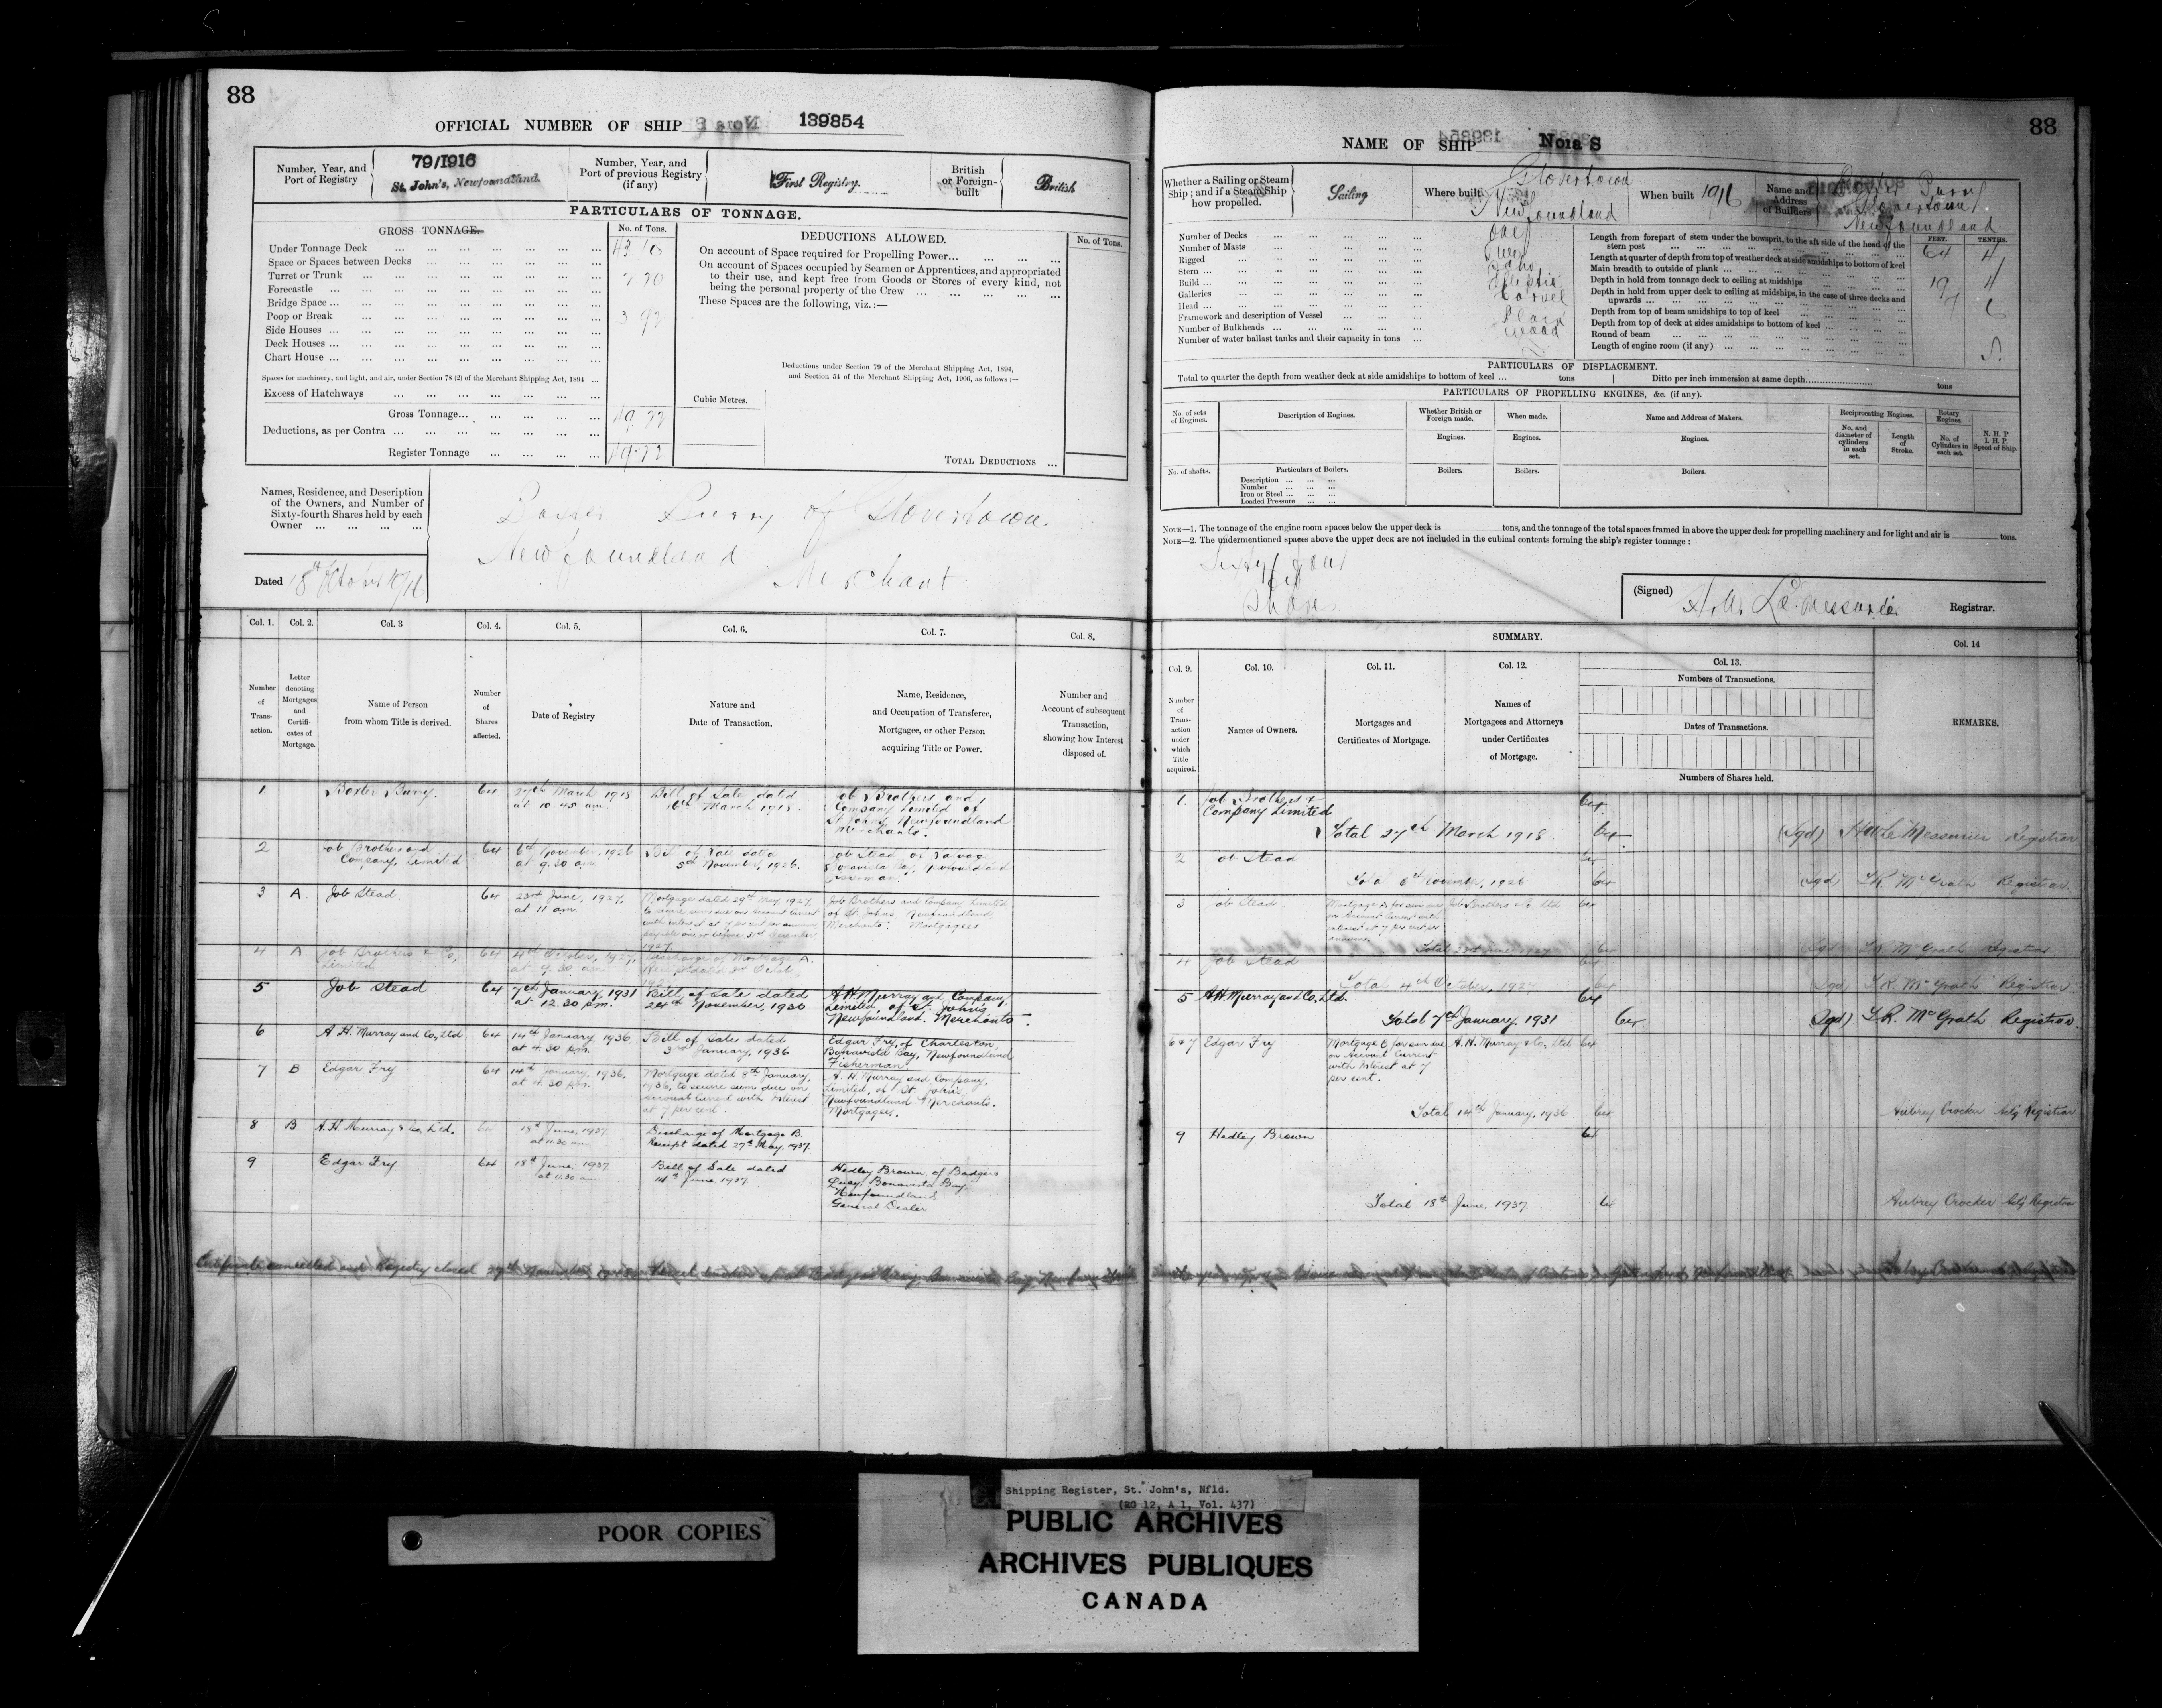 88
OFFICIAL NUMBER OF SHIP 139854
Number, Year, and
Port of Registry
79/1916
St. John's, Newfoundland.
Number, Year, and
Port of previous Registry
(if any)
First Registry.
British
or Foreign-
built
British
PARTICULARS OF TONNAGE.
GROSS TONNAGE.
No. of Tons.
Under Tonnage Deck
Space or Spaces between Decks
Turret or Trunk
Forecastle
Bridge Space
Poop or Break
Side Houses
Deck Houses
Chart House
Spaces for machinery, and light, and air, under Section 78 (2) of the Merchant Shipping Act, 1894
Excess of Hatchways
Gross Tonnage
Deductions, as per Contra
Register Tonnage
DEDUCTIONS ALLOWED.
No. of Tons.
On account of Space required for Propelling Power
On account of Spaces occupied by Seamen or Apprentices, and appropriated
to their use, and kept free from Goods or Stores of every kind, not
being the personal property of the Crew
These Spaces are the following, viz.:—
Deductions under Section 79 of the Merchant Shipping Act, 1894,
and Section 54 of the Merchant Shipping Act, 1906, as follows:—
Cubic Metres.
TOTAL DEDUCTIONS
Names, Residence, and Description
of the Owners, and Number of
Sixty-fourth Shares held by each
Owner
Burry of Glovertown
Newfoundland
Merchant
Dated 18th October 1916
Col. 1. Col. 2. Col. 3 Col. 4. Col. 5. Col. 6. Col. 7. Col. 8.
Number of Transaction.
Letter denoting Mortgages and Certificates of Mortgage.
Name of Person
from whom Title is derived.
Number of Shares affected.
Date of Registry
Nature and
Date of Transaction.
Name, Residence,
and Occupation of Transferee,
Mortgagee, or other Person
acquiring Title or Power.
Number and
Account of subsequent
Transaction,
showing how Interest
disposed of.
1 Baxter Burry. 64 27th March 1918 at 10 45 am. Bill of Sale dated 16th March 1918. Job Brothers and Company Limited of St Johns Newfoundland Merchants.
2 Job Brothers and Company, Limited 64 6th November, 1926 at 9.30 am Bill of Sale dated 5th November, 1926. Job Stead of Salvage Bonavista Bay, Newfoundland Fisherman.
3 A. Job Stead 64 23rd June, 1927, at 11 am Mortgage dated 29th May 1927, to secure sums due on Account Current with interest at 7 per cent per annum payable on or before 31st December 1927. Job Brothers and Company Limited of St Johns, Newfoundland, Merchants. Mortgagees
4 A Job Brothers & Co, Limited. 64 4th October, 1927, at 9.30 am Discharge of Mortgage A. Receipt dated
5 Job Stead 64 7th January, 1931 at 12.30 p.m. Bill of Sale dated 24th November, 1930 A H Murray and Company, Limited of St. John's Newfoundland. Merchants
6 A. H. Murray and Co, Ltd 64 14th January, 1936, at 4.30 pm. Bill of Sale dated 3rd January, 1936 Edgar Fry, of Charleston, Bonavista Bay, Newfoundland Fisherman
7 B Edgar Fry 64 14th January, 1936, at 4.30 pm. Mortgage dated 9th January, 1936, to secure sum due on Account Current with Interest at 7 per cent. A. H. Murray and Company, Limited, of St. John's Newfoundland Merchants. Mortgagees.
8 B A. H. Murray & Co. Ltd. 64 18th June, 1937 at 11.30 am Discharge of Mortgage B. Receipt dated 27th May, 1937.
9 Edgar Fry 64 18th June, 1937 at 11.30 am Bill of Sale dated 14th June 1937 Hedley Brown, of Badgers Quay, Bonavista Bay, Newfoundland General Dealer
Certificate cancelled and Registry closed 29th November
88
NAME OF SHIP Nora S
Whether a Sailing or Steam
Ship; and if a Steam Ship
how propelled.
Sailing
Where built
Glovertown
Newfoundland
When built 1916
Name and
Address
of Builders
Baxter Burry
Glovertown
Newfoundland.
Number of Decks One
Number of Masts Two
Rigged
Stern Elliptic
Build Carvel
Galleries
Head Plain
Framework and description of Vessel Wood
Number of Bulkheads
Number of water ballast tanks and their capacity in tons
FEET. TENTHS.
Length from forepart of stem under the bowsprit, to the aft side of the head of the
stern post 64 4
Length at quarter of depth from top of weather deck at side amidships to bottom of keel
Main breadth to outside of plank 19 4
Depth in hold from tonnage deck to ceiling at midships 7 6
Depth in hold from upper deck to ceiling at midships, in the case of three decks and
upwards
Depth from top of beam amidships to top of keel
Depth from top of deck at sides amidships to bottom of keel
Round of beam
Length of engine room (if any)
PARTICULARS OF DISPLACEMENT.
Total to quarter the depth from weather deck at side amidships to bottom of keel tons
Ditto per inch immersion at same depth tons
PARTICULARS OF PROPELLING ENGINES, &c. (if any).
No. of sets of Engines.
Description of Engines.
Whether British or Foreign made.
When made.
Name and Address of Makers.
Reciprocating Engines.
Rotary Engines
No. and diameter of cylinders in each set.
Length of Stroke.
No. of Cylinders in each set.
N. H. P
I. H. P.
Speed of Ship.
Engines. Engines. Engines.
No. of shafts.
Particulars of Boilers.
Boilers. Boilers. Boilers.
Description
Number
Iron or Steel
Loaded Pressure
NOTE—1. The tonnage of the engine room spaces below the upper deck is tons, and the tonnage of the total spaces framed in above the upper deck for propelling machinery and for light and air is tons.
NOTE—2. The undermentioned spaces above the upper deck are not included in the cubical contents forming the ship's register tonnage:
Sixty four
64
Shares
(Signed) Le Messurier Registrar.
SUMMARY.
Col. 9. Col. 10. Col. 11. Col. 12. Col. 13. Col. 14
Number of Transaction under which Title acquired.
Names of Owners.
Mortgages and
Certificates of Mortgage.
Names of
Mortgagees and Attorneys
under Certificates
of Mortgage.
Numbers of Transactions.
Dates of Transactions.
Numbers of Shares held.
REMARKS.
1. Job Brothers & Company Limited 64
Total 27th March 1918. 64 (Sgd) Le Messurier Registrar
2 Job Stead 64
Total 6th November, 1926 64 (Sgd) L.R. McGrath Registrar.
3 Job Stead Mortgage A for sum due on Account Current with interest at 7 per cent per annum. Job Brothers & Co. Ltd 64
Total 23rd June 1927 64 (Sgd) L.R. McGrath Registrar
4 Job Stead 64
Total 4th October, 1927 64 (Sgd) L.R. McGrath Registrar.
5 A H. Murray and Co, Ltd. 64
Total 7th January, 1931 64 (Sgd) L.R. McGrath Registrar.
6&7 Edgar Fry Mortgage B for sum due on Account Current with Interest at 7 per cent. A. H. Murray & Co, Ltd 64
Total 14th January, 1936 64 Aubrey Crocker Registrar
9 Hedley Brown 64
Total 18th June, 1937. 64 Aubrey Crocker Registrar
POOR COPIES
Shipping Register, St. John's, Nfld.
(RG 12, A 1, Vol. 437)
PUBLIC ARCHIVES
ARCHIVES PUBLIQUES
CANADA